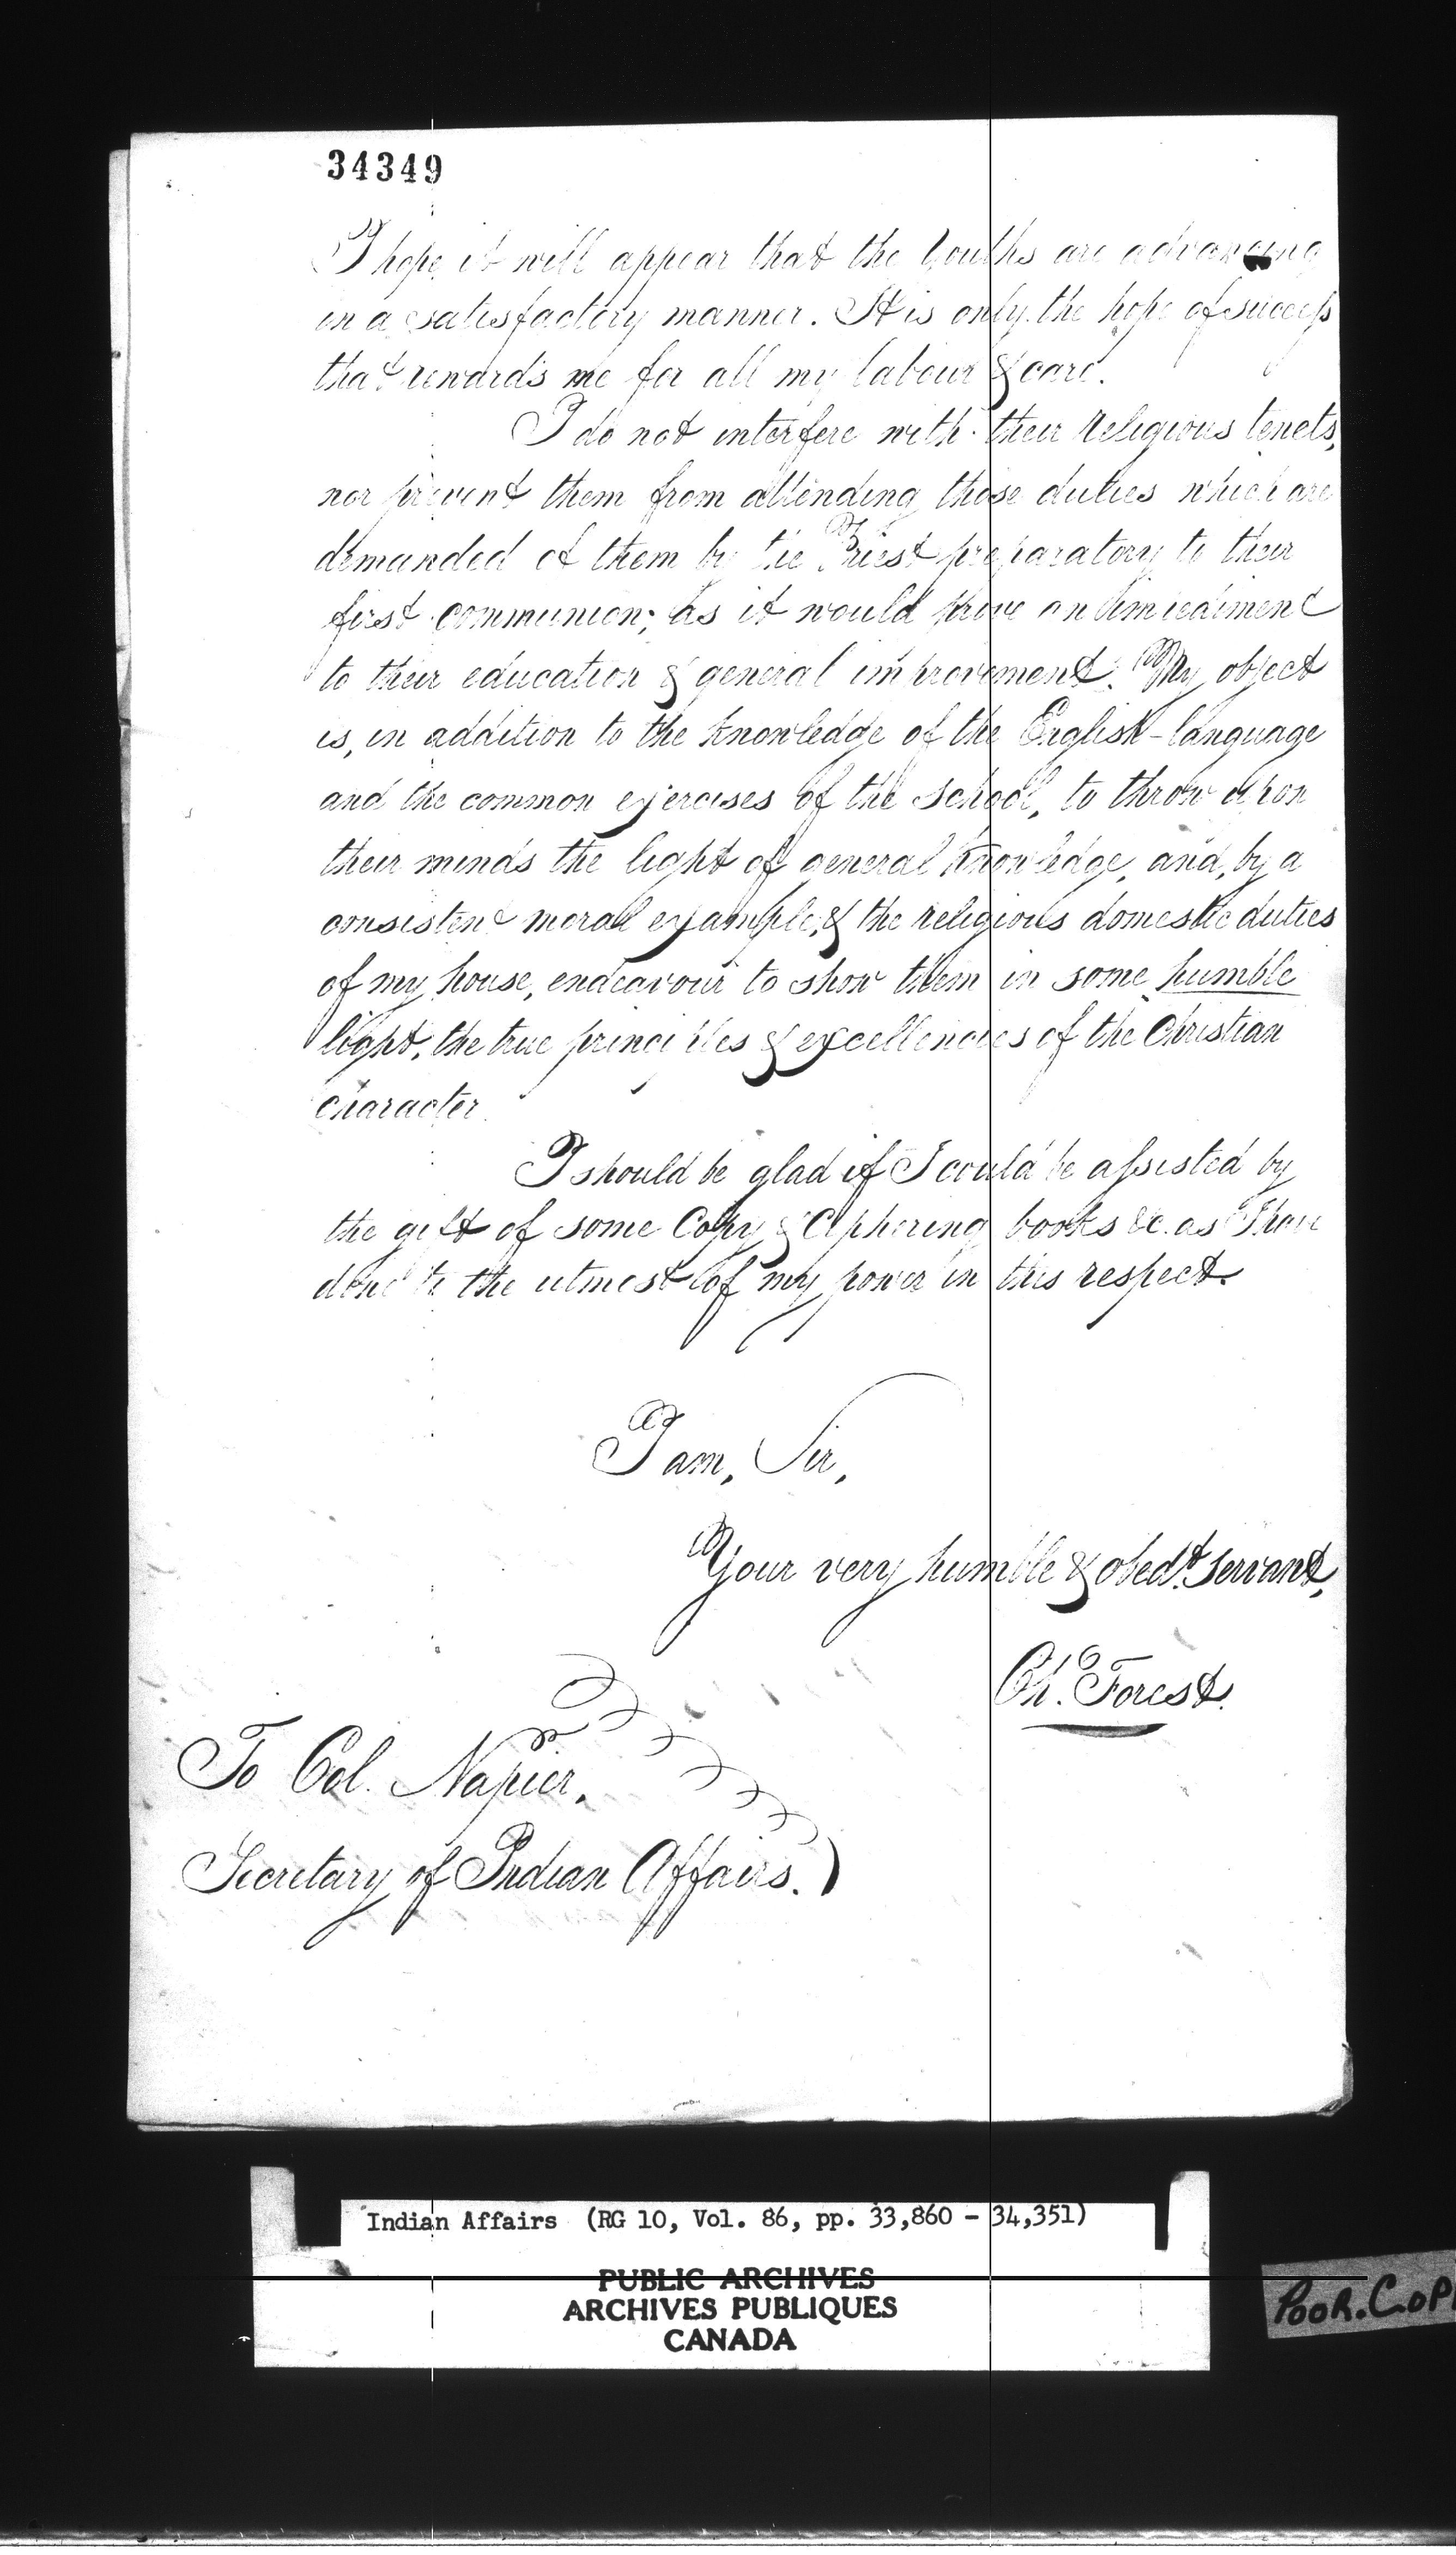 34349
I hope it will appear that the Youths are advancing
in a satisfactory manner. It is only the hope of success
that rewards me for all my labour & care.
I do not interfere with their religious tenets,
nor prevent them from attending those duties which are
demanded of them by the Priest preparatory to their
first communion; as it would prove an impediment
to their education & general improvement. My object
is, in addition to the knowledge of the English-language
and the common exercises of the school, to throw upon
their minds the light of general knowledge, and, by a
consistent moral example, & the religious domestic duties
of my house, endeavour to show them in some humble
light, the true principles & excellencies of the Christian
character.
I should be glad if I could be assisted by
the gift of some Copy & Cyphering books &c. as I have
done to the utmost of my power in this respect.
I am, Sir,
Your very humble & obedt. servant,
Chs. Forest.
To Col. Napier,
Secretary of Indian Affairs.)
Indian Affairs (RG 10, Vol. 86, pp. 33,860 - 34,351)
PUBLIC ARCHIVES
ARCHIVES PUBLIQUES
CANADA
POOR.COP